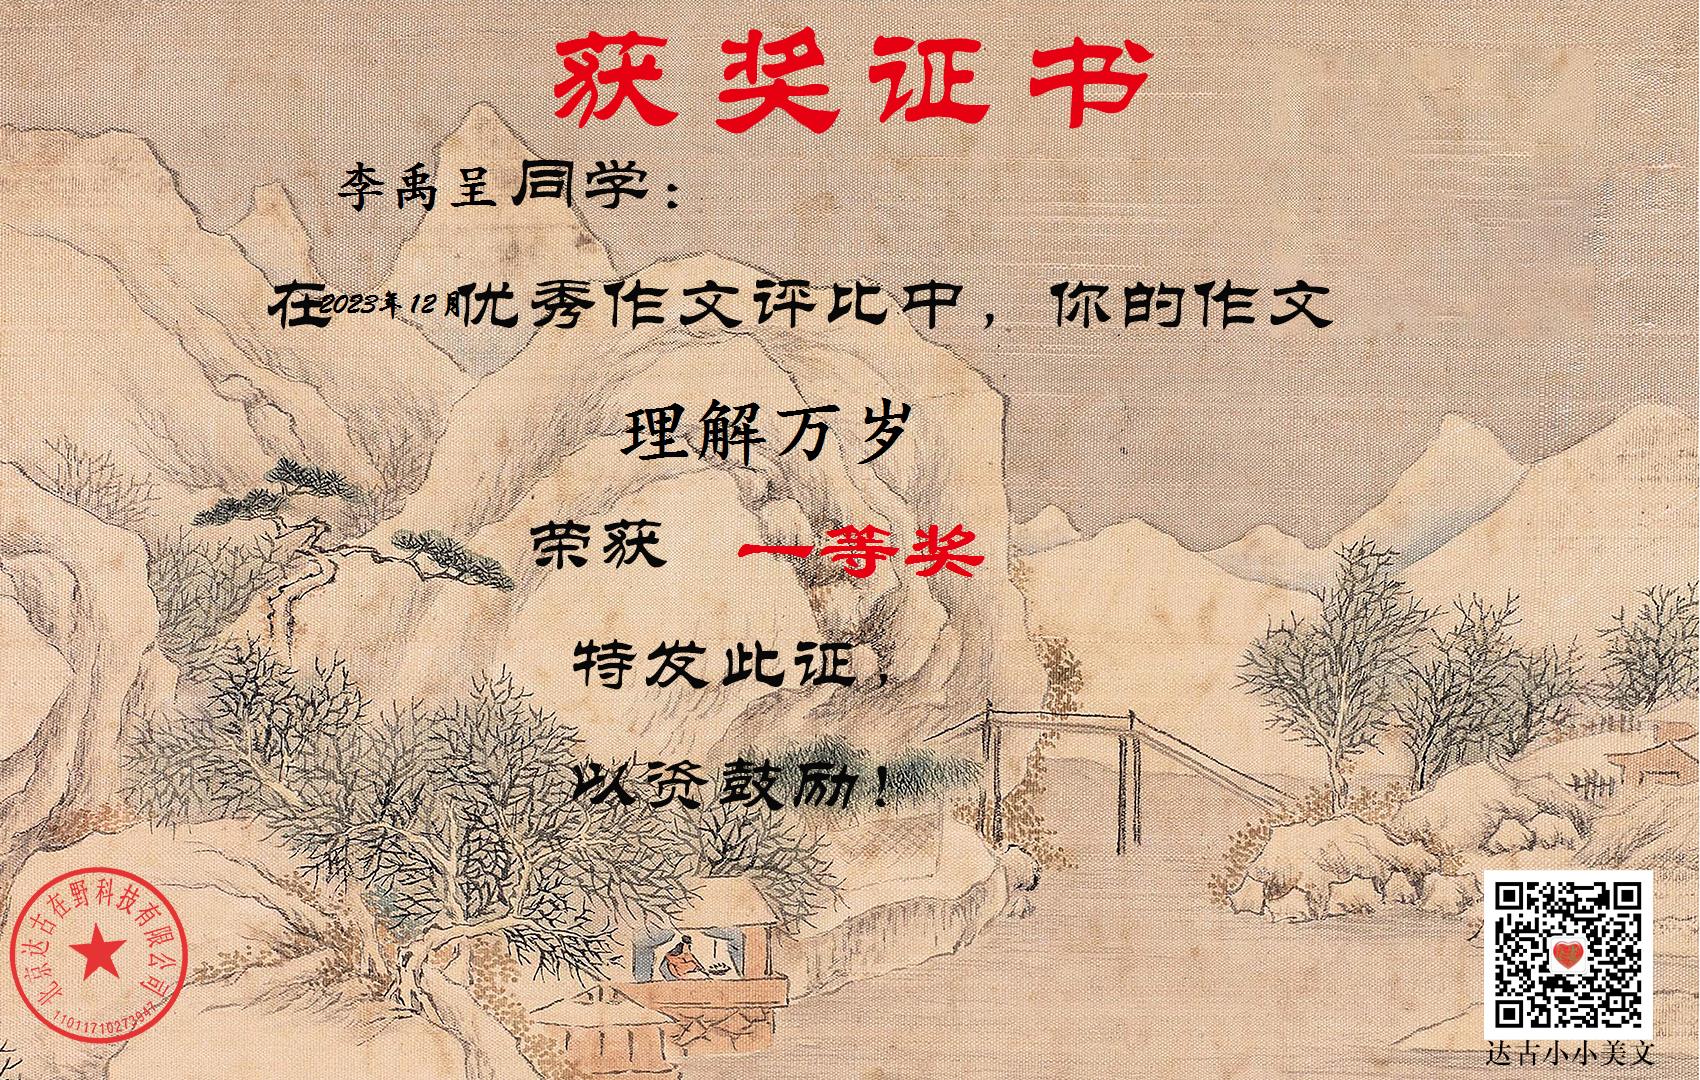 获奖证书
李禹呈同学：
在2023年12月优秀作文评比中，你的作文
理解万岁
荣获 一等奖
特发此证，
以资鼓励！
北京达古在野科技有限公司
11011710273947
达古小小美文